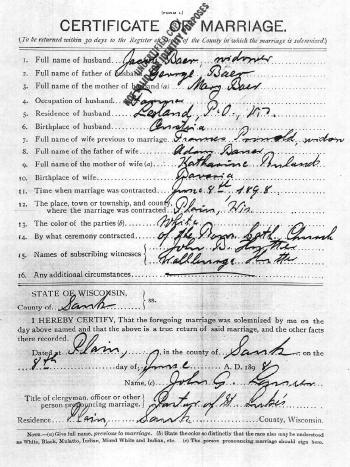 (FORM 1.)
CERTIFICATE OF MARRIAGE.
(To be returned within 30 days to the Register of Deeds of the County in which the marriage is solemnized)
1. Full name of husband Jacob Baer, widower
2. Full name of father of husband George Baer
3. Full name of the mother of husband (a) Mary Baer
4. Occupation of husband Farmer
5. Residence of husband P.O.
6. Birthplace of husband Austria
7. Full name of wife previous to marriage. widow
8. Full name of the father of wife
9. Full name of the mother of wife (a) Katharine
10. Birthplace of wife Bavaria
11. Time when marriage was contracted June 8th 1898
12. The place, town or township, and county,
where the marriage was contracted Plain, Wis
13. The color of the parties (b) White
14. By what ceremony contracted of the Rom. Cath. Church
15. Names of subscribing witnesses John
16. Any additional circumstances
STATE OF WISCONSIN,
County of Sauk ss.
I HEREBY CERTIFY, That the foregoing marriage was solemnized by me on the
day above named and that the above is a true return of said marriage, and the other facts
there recorded.
Dated at Plain, in the county of Sauk on the
8th day of June A. D. 1898
Name, (c) John G.
Title of clergyman, officer or other
person pronouncing marriage. Pastor of St. Lukes
Residence Plain, Sauk County, Wisconsin.
NOTE.—(a) Give full name, previous to marriage. (b) State the color so distinctly that the race also may be understood
as White, Black, Mulatto, Indian, Mixed White and Indian, etc. (c) The person pronouncing marriage should sign here.